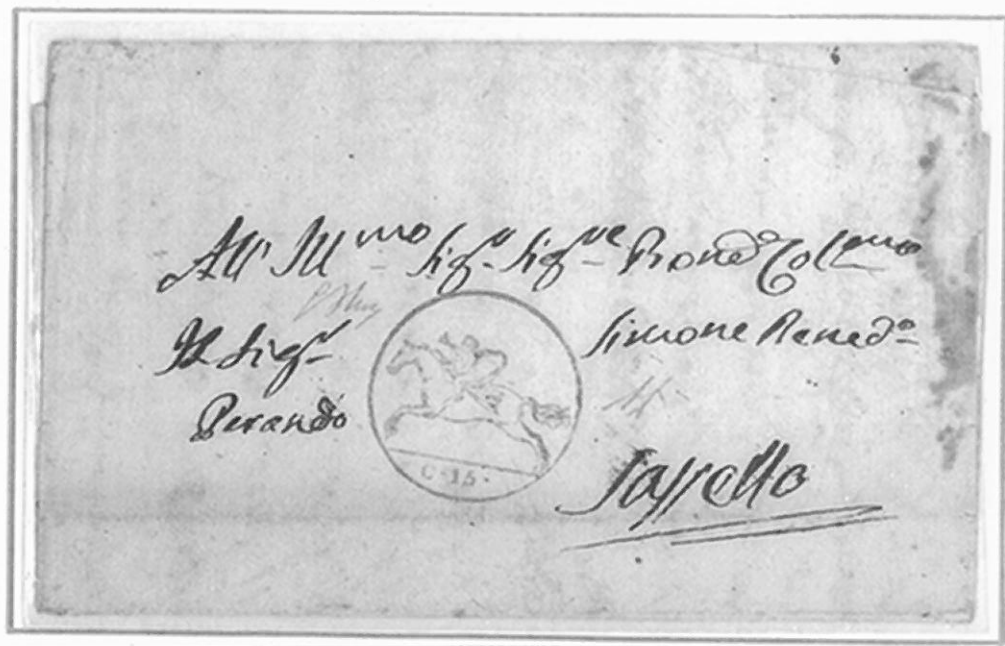 All' Ill.mo Sig.r Sig.re Pron.e Col.mo
Il Sig.r Simone Bened.o
Perando
C. 15.
Sassello